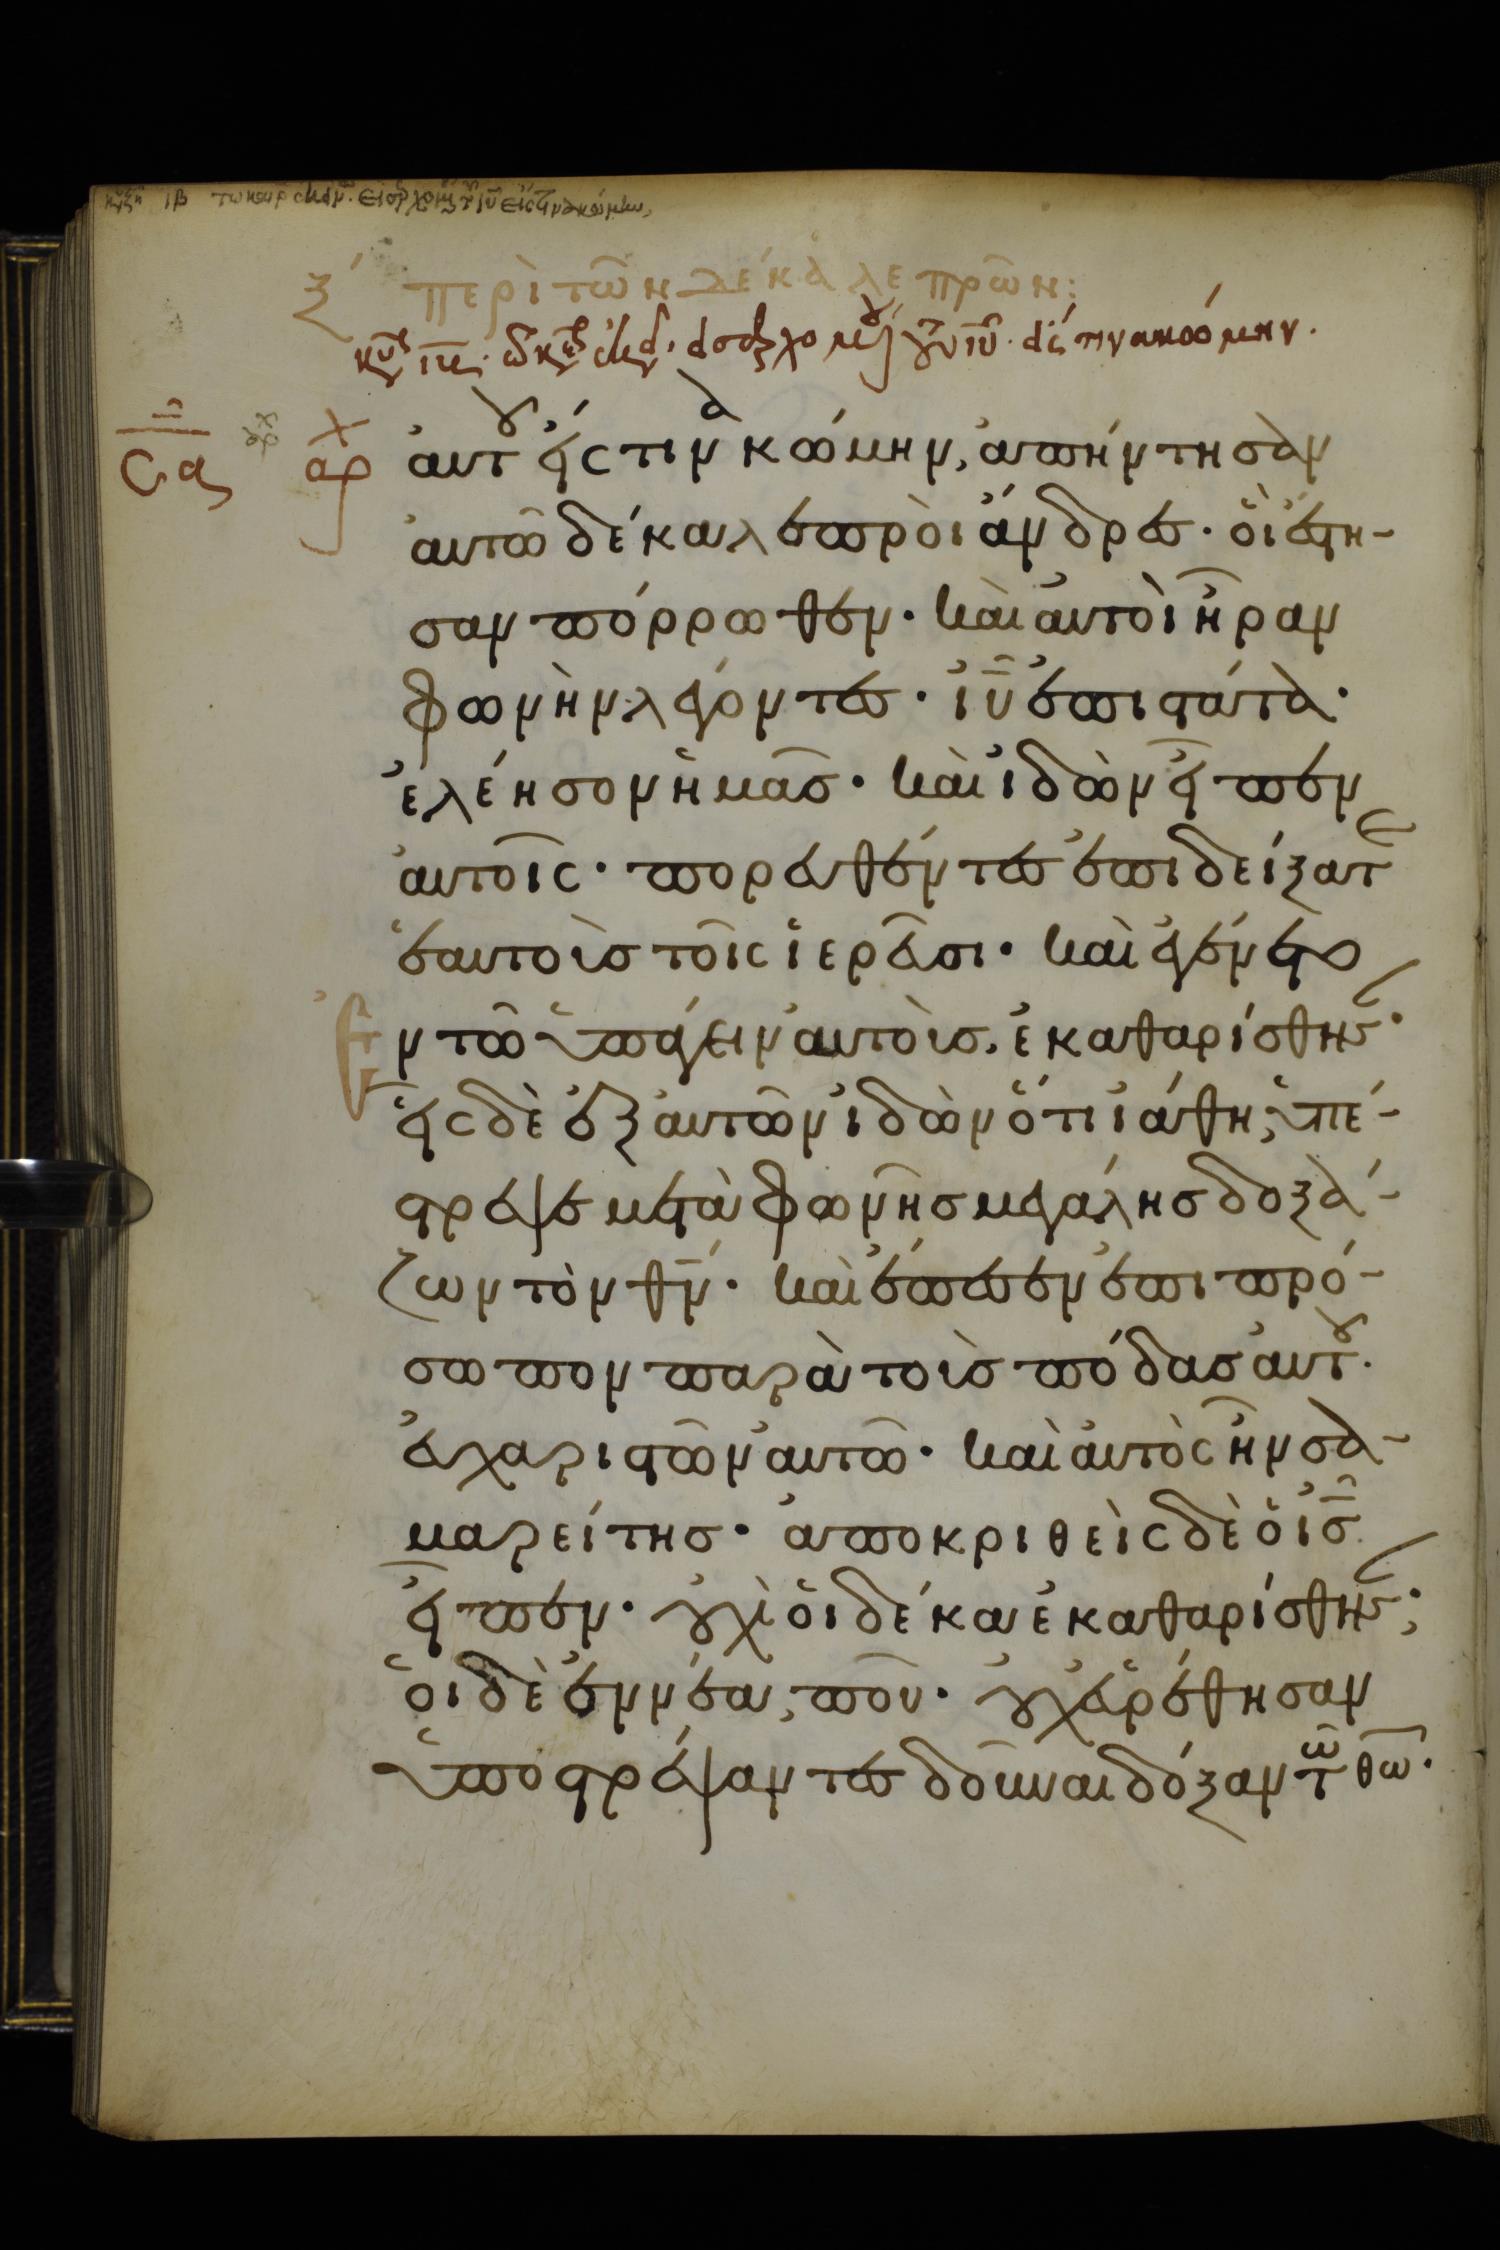 ξ περὶ τῶν δέκα λεπρῶν:
ϲα αρχ
αὐτου εἴς τινα κώμην, ἀπήντησαν
αὐτῶ δέκα λεπροὶ ἄνδρες· οἳ ἔστη-
σαν πόρρωθεν· καὶ αὐτοὶ ἦραν
φωνὴν λέγοντες· ἰῦ ἐπιστάτα·
ἐλέησον ἡμᾶσ· καὶ ἰδὼν εἶπεν
αὐτοῖς· πορευθέντες ἐπιδείξατε
ἑαυτοὺσ τοῖς ἱερεῦσι· καὶ ἐγένετο
ἐν τῶ ὑπάγειν αὐτοὺσ, ἐκαθαρίσθησαν·
εἷς δὲ ἐξ αὐτῶν ἰδὼν ὅτι ἰάθη, ὑπέ-
στρεψε μετὰ φωνῆσ μεγάλησ δοξά-
ζων τὸν θν· καὶ ἔπεσεν ἐπὶ πρό-
σωπον παρὰ τοὺσ πόδασ αὐτου.
εὐχαριστῶν αὐτῶ· καὶ αὐτὸς ἦν σα-
μαρείτησ· ἀποκριθεὶς δὲ ὁ ἰσ
εἶπεν· οὐχὶ οἱ δέκα ἐκαθαρίσθησαν;
οἱ δὲ ἐννέα, ποῦ· οὐχ εὑρέθησαν
ὑποστρέψαντες δοῦναι δόξαν τῶ θω·